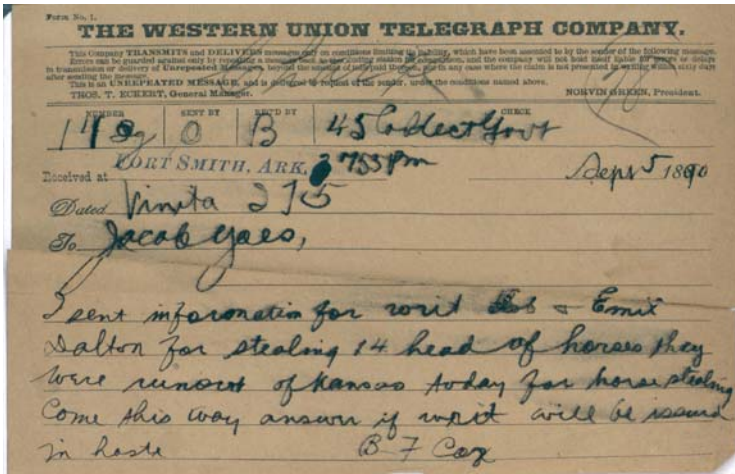 Form No. 1.
THE WESTERN UNION TELEGRAPH COMPANY.
This Company TRANSMITS and DELIVERS messages only on conditions limiting its liability, which have been assented to by the sender of the following message.
Errors can be guarded against only by repeating a message back to the sending station for comparison, and the company will not hold itself liable for errors or delays
in transmission or delivery of Unrepeated Messages, beyond the amount of tolls paid thereon, nor in any case where the claim is not presented in writing within sixty days
after sending the message.
This is an UNREPEATED MESSAGE, and is delivered by request of the sender, under the conditions named above.
THOS. T. ECKERT, General Manager. NORVIN GREEN, President.
NUMBER SENT BY REC'D BY CHECK
O B 45 Collect Govt
FORT SMITH, ARK, 755 Pm
Received at Sept 5 1890
Dated Vinita I T 5
To Jacob Yoes,
I sent information for writ Bob & Emit
Dalton for stealing 14 head of horses they
were runout of Kansas today for horse stealing
Come this way answer if writ will be issued
in haste B F Cox